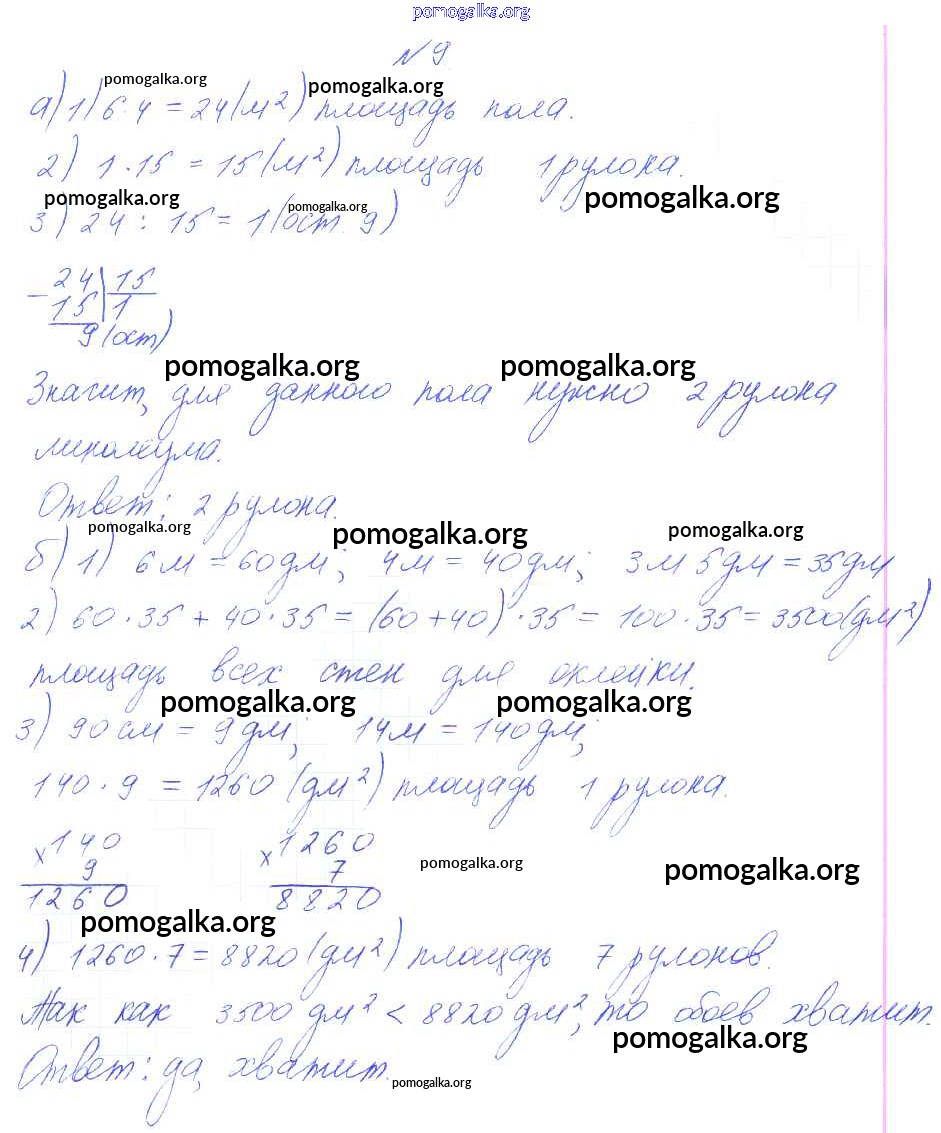 pomogalka.org
№ 9
pomogalka.org pomogalka.org
а) 1) 6·4 = 24 (м²) площадь пола.
2) 1·15 = 15 (м²) площадь 1 рулона.
pomogalka.org pomogalka.org pomogalka.org
3) 24 : 15 = 1 (ост. 9)
- 24 | 15
15 | 1
9 (ост)
pomogalka.org pomogalka.org
Значит, для данного пола нужно 2 рулона
линолеума.
Ответ: 2 рулона.
pomogalka.org pomogalka.org pomogalka.org
б) 1) 6 м = 60 дм; 4 м = 40 дм; 3 м 5 дм = 35 дм
2) 60·35 + 40·35 = (60+40)·35 = 100·35 = 3500 (дм²)
площадь всех стен для оклейки.
pomogalka.org pomogalka.org
3) 90 см = 9 дм; 14 м = 140 дм;
140·9 = 1260 (дм²) площадь 1 рулона.
× 140 × 1260
9 7
1260 8820
pomogalka.org pomogalka.org
pomogalka.org
4) 1260·7 = 8820 (дм²) площадь 7 рулонов.
Так как 3500 дм² < 8820 дм², то обоев хватит.
pomogalka.org
Ответ: да, хватит.
pomogalka.org